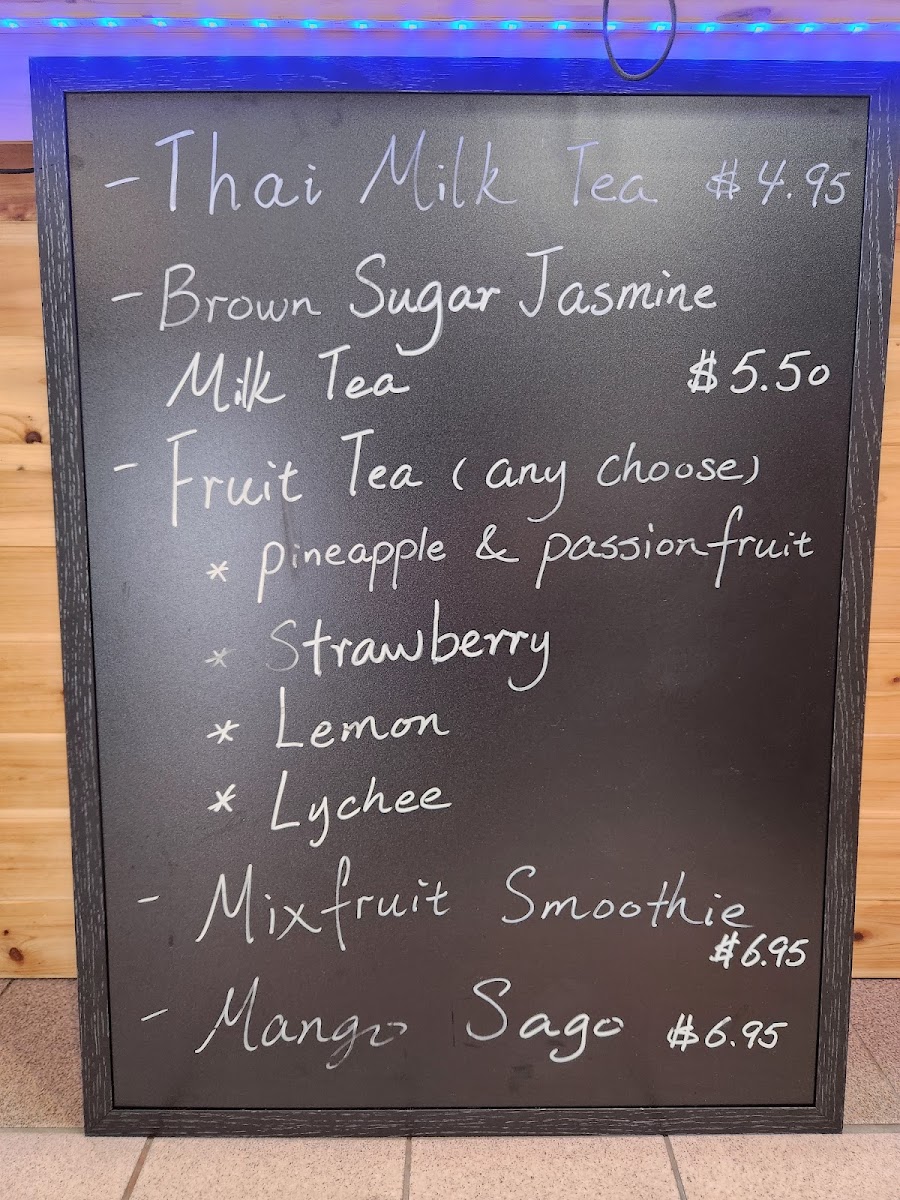 - Thai Milk Tea $4.95
- Brown Sugar Jasmine
Milk Tea $5.50
- Fruit Tea (any choose)
* pineapple & passionfruit
* Strawberry
* Lemon
* Lychee
- Mixfruit Smoothie
$6.95
- Mango Sago $6.95